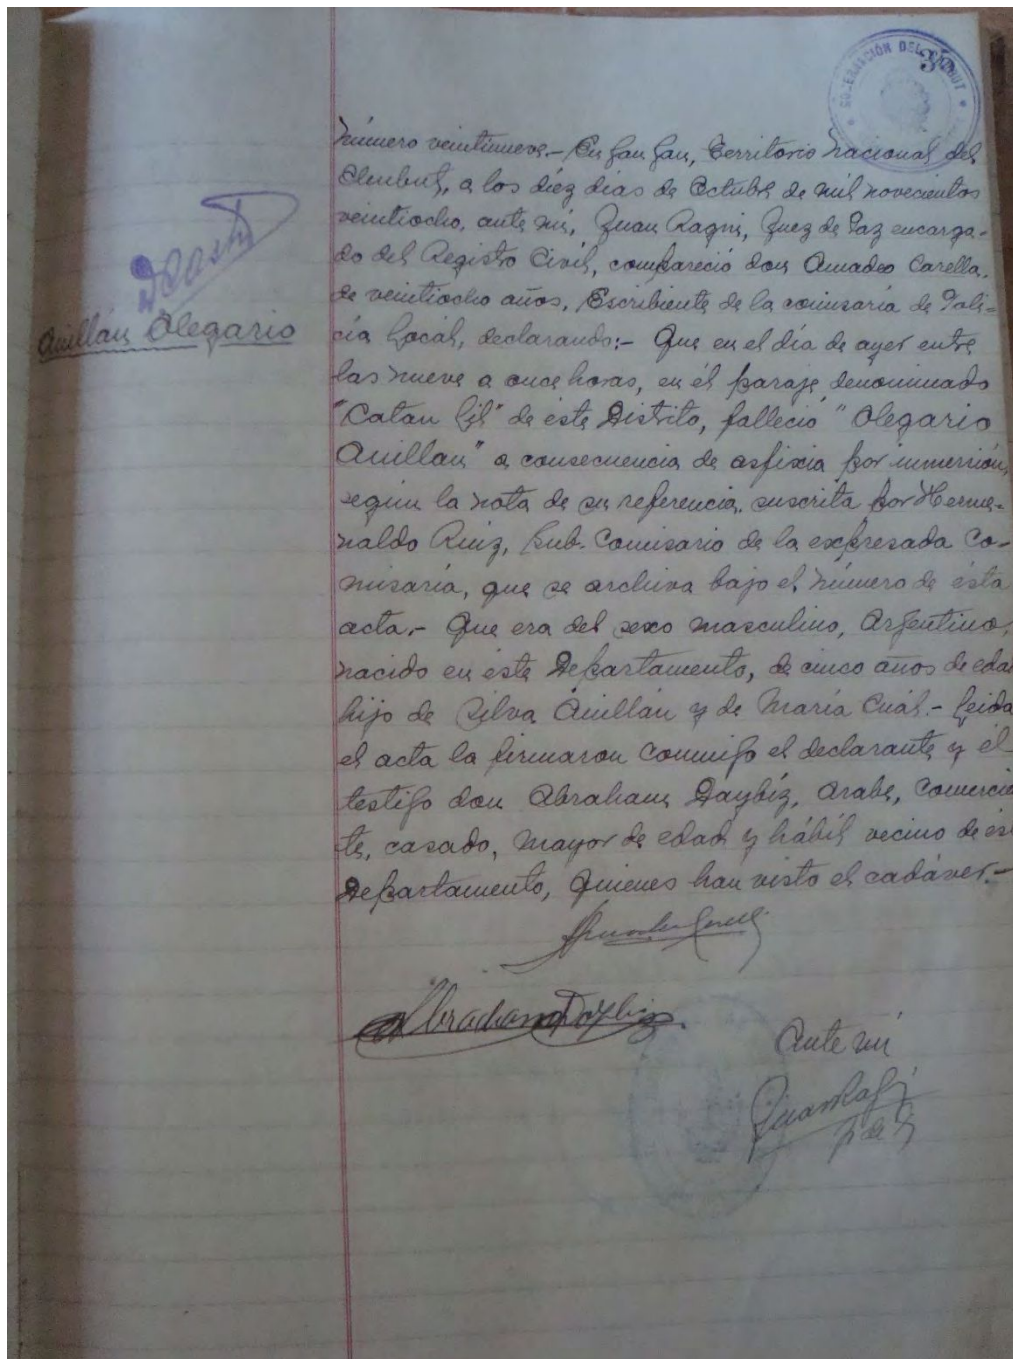 GOBERNACIÓN DEL CHUBUT
Número veintinueve.- En Gan Gan, Territorio Nacional del
Chubut, a los diéz días de Octubre de mil novecientos
veintiocho, ante mí, Juan Ragni, Juez de Paz encarga-
do del Registro Civil, compareció don Amadeo Carella,
de veintiocho años, Escribiente de la comisaría de Poli=
cía Local, declarando:- Que en el día de ayer entre
las nueve a once horas, en él paraje denominado
"Catan Lil" de éste Distrito, falleció "Olegario
Auillán" a consecuencia de asfixia por inmersión,
según la nota de su referencia, suscrita por Herme-
naldo Ruiz, Sub-Comisario de la expresada Co-
misaría, que se archiva bajo el número de ésta
acta.- Que era del sexo masculino, Argentino,
nacido en éste Departamento, de cinco años de eda
hijo de Silva Auillán y de María Cuál.- Leida
el acta la firmaron conmigo el declarante y él
testigo don Abraham Daybiz, Arabe, Comercia
te, casado, mayor de edad y hábil vecino de és
Departamento, quienes han visto el cadáver.-
Auillán Olegario
Abraham Daybiz
Ante mí